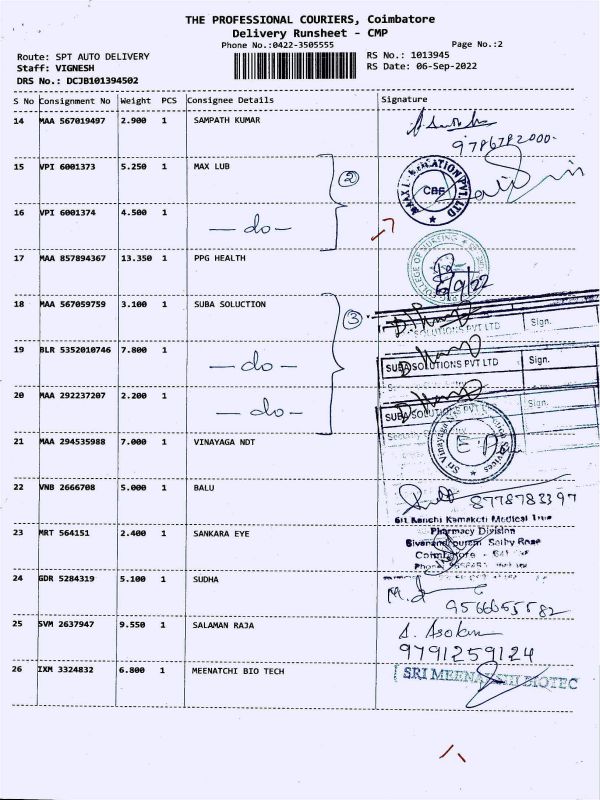 THE PROFESSIONAL COURIERS, Coimbatore
Delivery Runsheet - CMP
Phone No.:0422-3505555
Page No.:2
Route: SPT AUTO DELIVERY
RS No.: 1013945
Staff: VIGNESH
RS Date: 06-Sep-2022
DRS No.: DCJB101394502
S No Consignment No Weight PCS Consignee Details Signature
14 MAA 567019497 2.900 1 SAMPATH KUMAR
9786782000
15 VPI 6001373 5.250 1 MAX LUB
2
CBE
16 VPI 6001374 4.500 1 - do -
17 MAA 857894367 13.350 1 PPG HEALTH
COLLEGE OF NURSING
6/9/22
18 MAA 567059759 3.100 1 SUBA SOLUCTION
3
SOLUTIONS PVT LTD Sign.
19 BLR 5352010746 7.800 1 - do -
SUBA SOLUTIONS PVT LTD Sign.
20 MAA 292237207 2.200 1 - do -
SUBA SOLUTIONS PVT L Sign.
21 MAA 294535988 7.000 1 VINAYAGA NDT
Sri Vinayaga
22 VNB 2666708 5.000 1 BALU
8778783397
Sri Kanchi Kamakoti Medical Trust
23 MRT 564151 2.400 1 SANKARA EYE
Pharmacy Division
Sivanandapuram Sathy Road
Coimbatore - 641
24 GDR 5284319 5.100 1 SUDHA
M.d
9566655582
25 SVM 2637947 9.550 1 SALAMAN RAJA
A. Asokan
9791259124
26 IXM 3324832 6.800 1 MEENATCHI BIO TECH
SRI MEENAKSHI BIOTEC